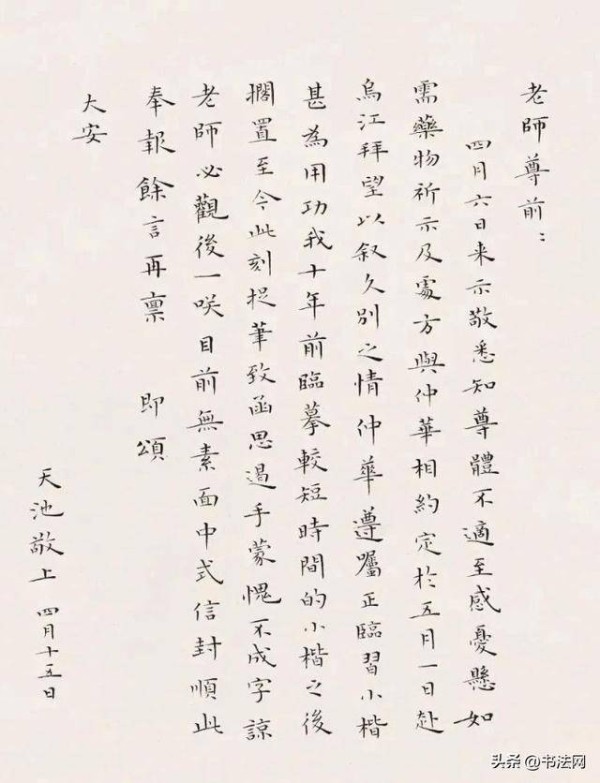 老師尊前：
四月六日来示敬悉知尊體不適至感憂懸如
需藥物祈示及處方與仲華相約定於五月一日赴
烏江拜望以叙久別之情仲華遵囑正臨習小楷
甚為用功我十年前臨摹較短時間的小楷之後
擱置至今此刻捉筆致函思過手蒙愧不成字諒
老師必觀後一咲目前無素面中式信封順此
奉報餘言再禀 即頌
大安
天池敬上 四月十五日
头条@书法网